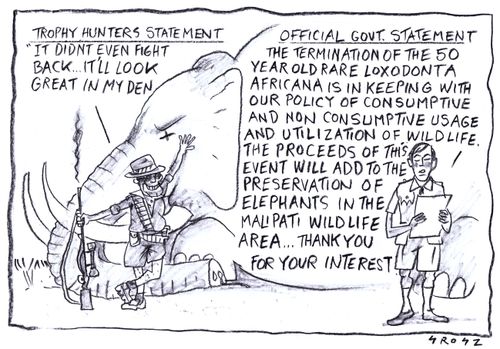 TROPHY HUNTERS STATEMENT
"IT DIDNT EVEN FIGHT
BACK...IT'LL LOOK
GREAT IN MY DEN
OFFICIAL GOVT. STATEMENT
THE TERMINATION OF THE 50
YEAR OLD RARE LOXODONTA
AFRICANA IS IN KEEPING WITH
OUR POLICY OF CONSUMPTIVE
AND NON CONSUMPTIVE USAGE
AND UTILIZATION OF WILDLIFE.
THE PROCEEDS OF THIS
EVENT WILL ADD TO THE
PRESERVATION OF
ELEPHANTS IN THE
MALIPATI WILDLIFE
AREA... THANK YOU
FOR YOUR INTEREST